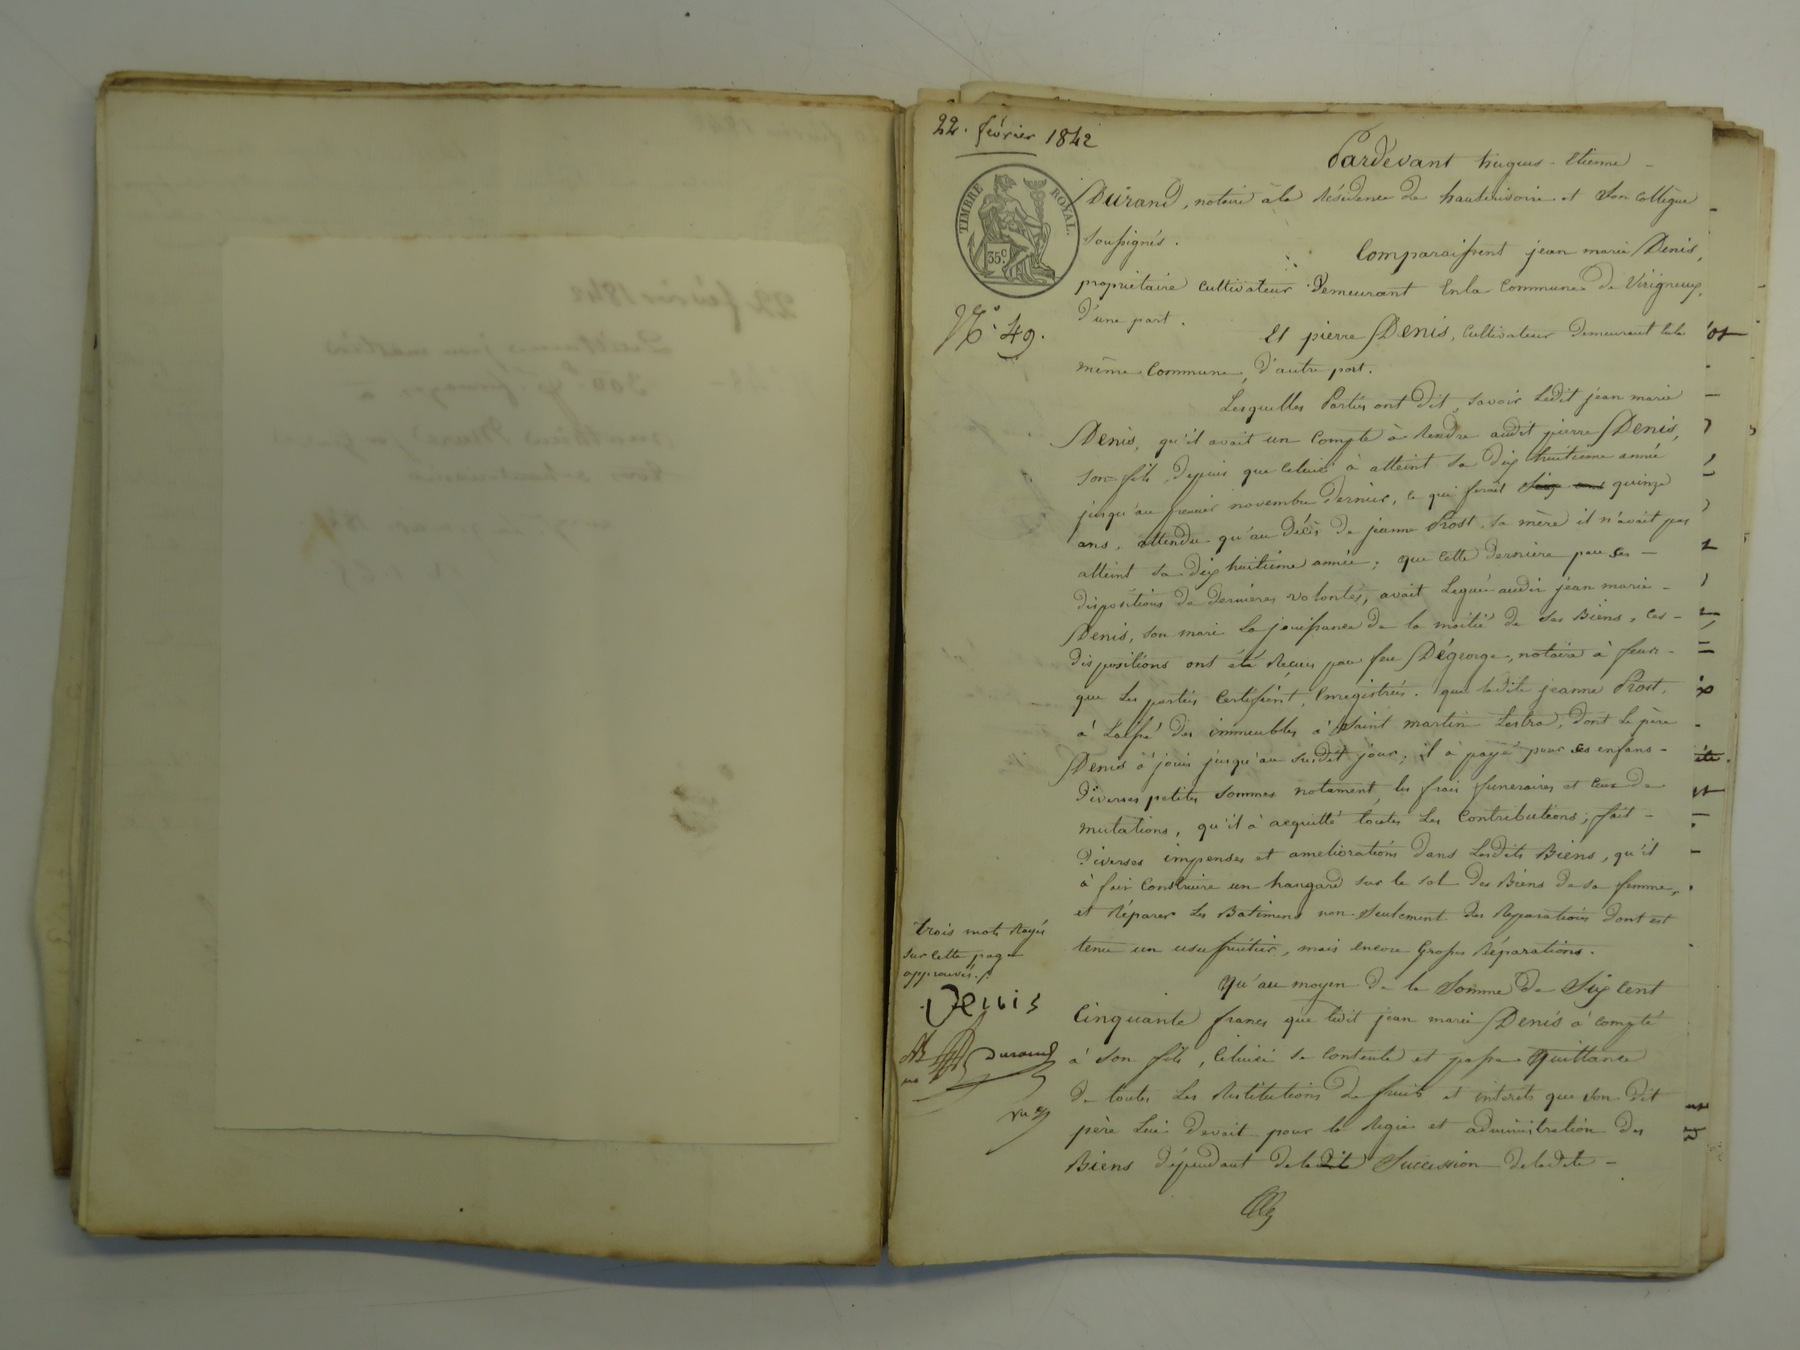 22. février 1842
TIMBRE ROYAL.
35c
N° 49.
Pardevant hugues-Etienne
Durand, notaire à la Résidence de hauterivoire et Son Collègue
soussignés.
Comparaissent jean marie Denis,
propriétaire cultivateur demeurant En la Commune de Virigneux,
d'une part.
Et pierre Denis, Cultivateur demeurant en la
même Commune, d'autre part.
Lesquelles Parties ont dit, savoir Ledit jean marie
Denis, qu'il avait un Compte à Rendre audit pierre Denis,
son fils, depuis que Celuici à atteint sa dix huitième année
jusqu'au premier novembre dernier, ce qui ferait quinze
ans, attendu qu'au Décès de jeanne Prost, sa mère il n'avait pas
atteint sa dix huitième année; que Cette dernière par ses
dispositions de dernières volontés, avait Legué audit jean marie
Denis, son mari La jouissance de la moitié de Ses Biens, Ces
dispositions ont été Reçues par feu Dégeorge, notaire à feurs
que Les parties Certifient, Enregistrées. que ladite jeanne Prost,
à Laissé des immeubles à Saint martin Lestra, dont Le père
Denis à joui jusqu'au susdit jour; il à payé pour ses enfans
diverses petites Sommes notament les frais funeraires et Ceux de
mutations, qu'il à acquitté toutes Les Contributions; fait
diverses impenses et ameliorations dans Lesdits Biens, qu'il
à fair Construire un hangard sur le sol des Biens de sa femme,
et Réparer Les Batimens non Seulement des Reparations dont est
tenu un usufruitier, mais encore Grosses Réparations.
Qu'au moyen de la Somme de Six Cent
Cinquante francs que ledit jean marie Denis à compté
à Son fils, Celuici se Contente et passe Quittance
de toutes Les Restitutions de fruits et interets que son dit
père Lui devait pour la Régie et administration des
Biens dépendant de ladite Succession de ladite
trois mots Rayés
sur Cette page
approuvés./.
Denis
Durand